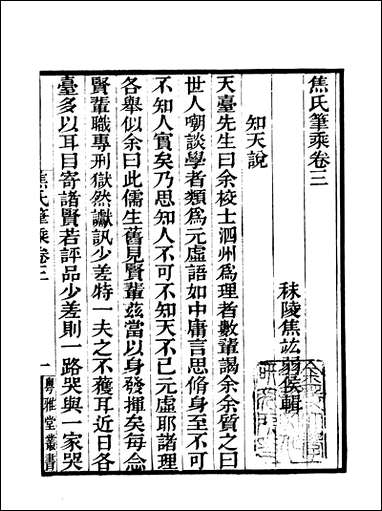 焦氏筆乘卷三
秣陵焦竑弱侯輯
知天說
天臺先生曰余校士泗州為理者數輩謁余余質之曰
世人嘲談學者類為元虛語如中庸言思脩身至不可
不知人實矣乃思知人不可不知天不已元虛耶諸理
各舉似余曰此儒生舊見賢輩茲當以身發揮矣每念
賢輩職專刑獄然讞訊少差特一夫之不獲耳近日各
臺多以耳目寄諸賢若評品少差則一路哭與一家哭
焦氏筆乘卷三
一
粵雅堂叢書